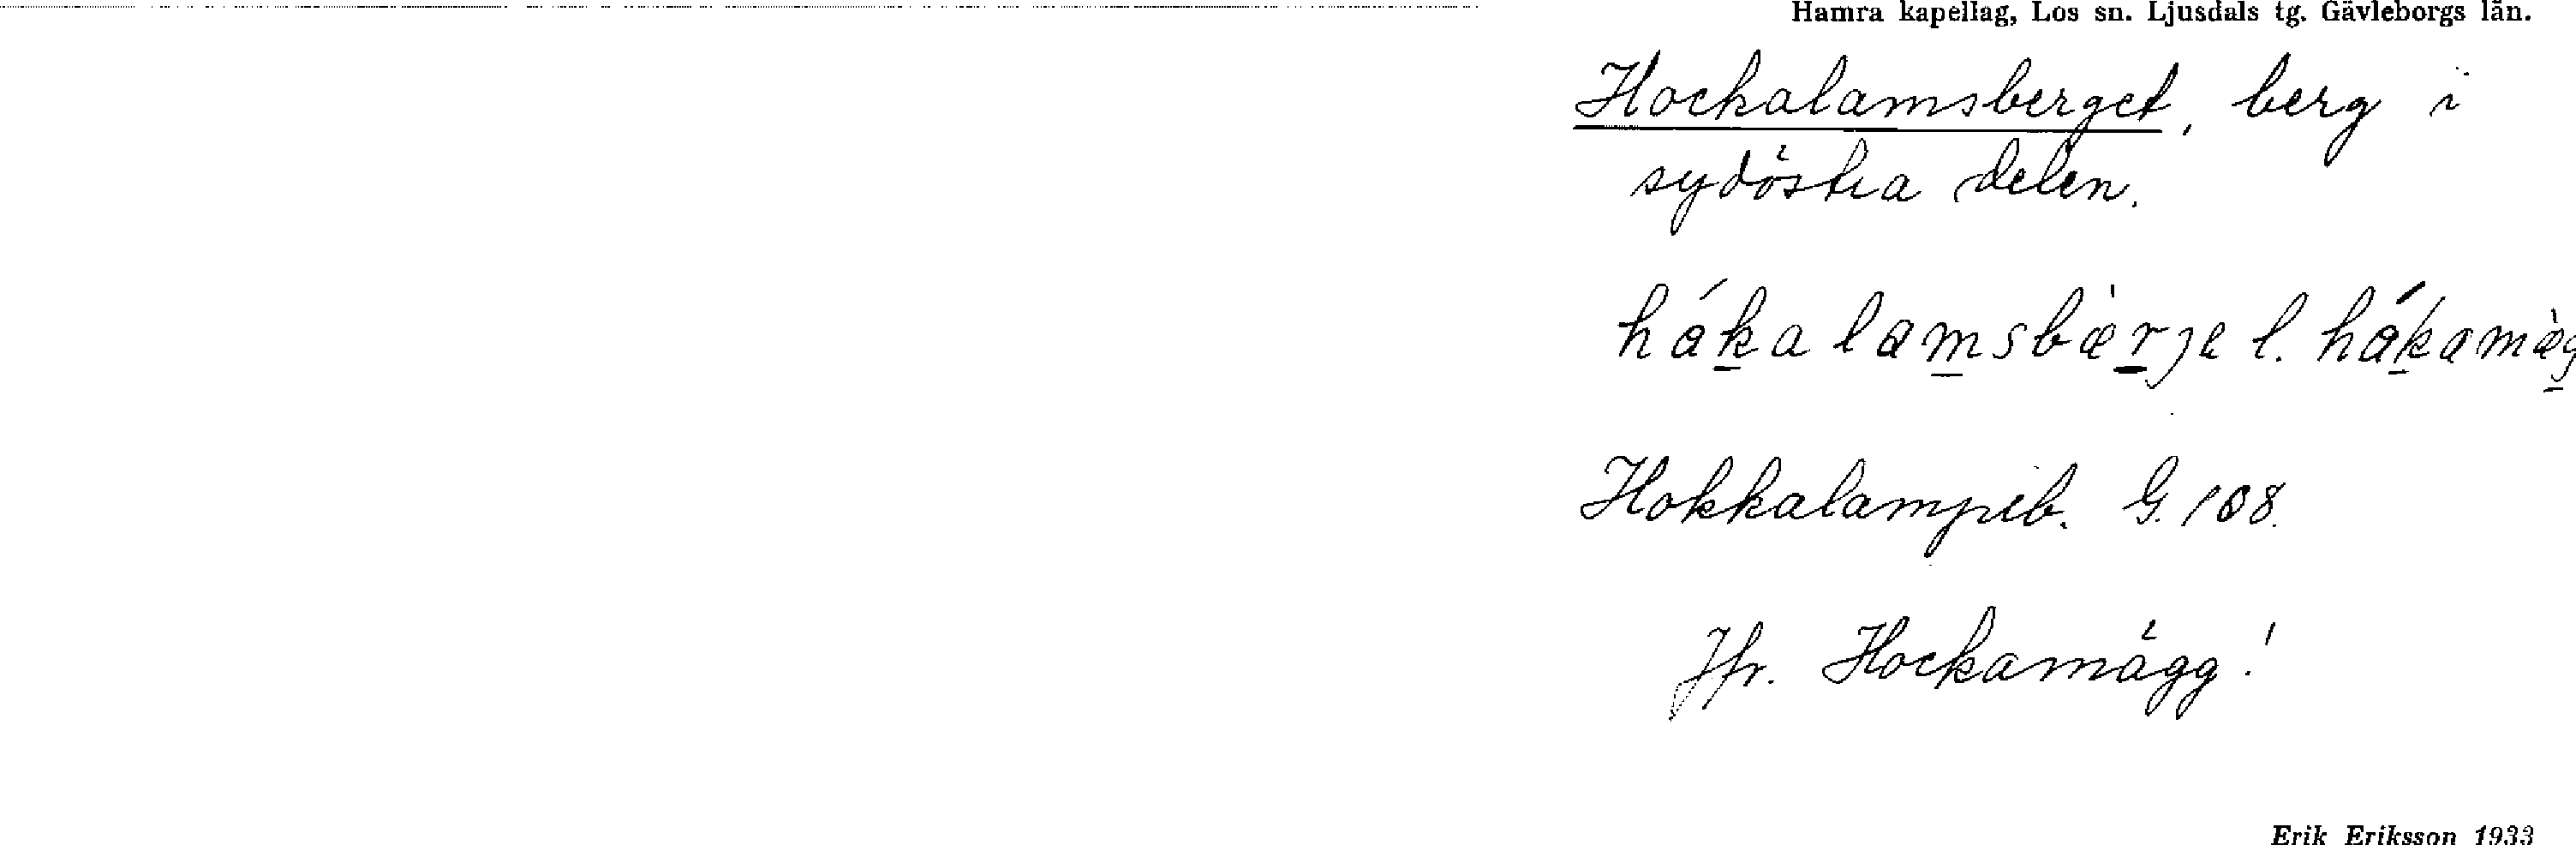 Hamra kapellag, Los sn. Ljusdals tg. Gävleborgs län.
Hockalamsberget, berg i
sydöstra delen.
hákalamsbæ̀rje l. hákamæ̀g
Hokkalampib. G. 108.
Jfr. Hockamägg!
Erik Eriksson 1933